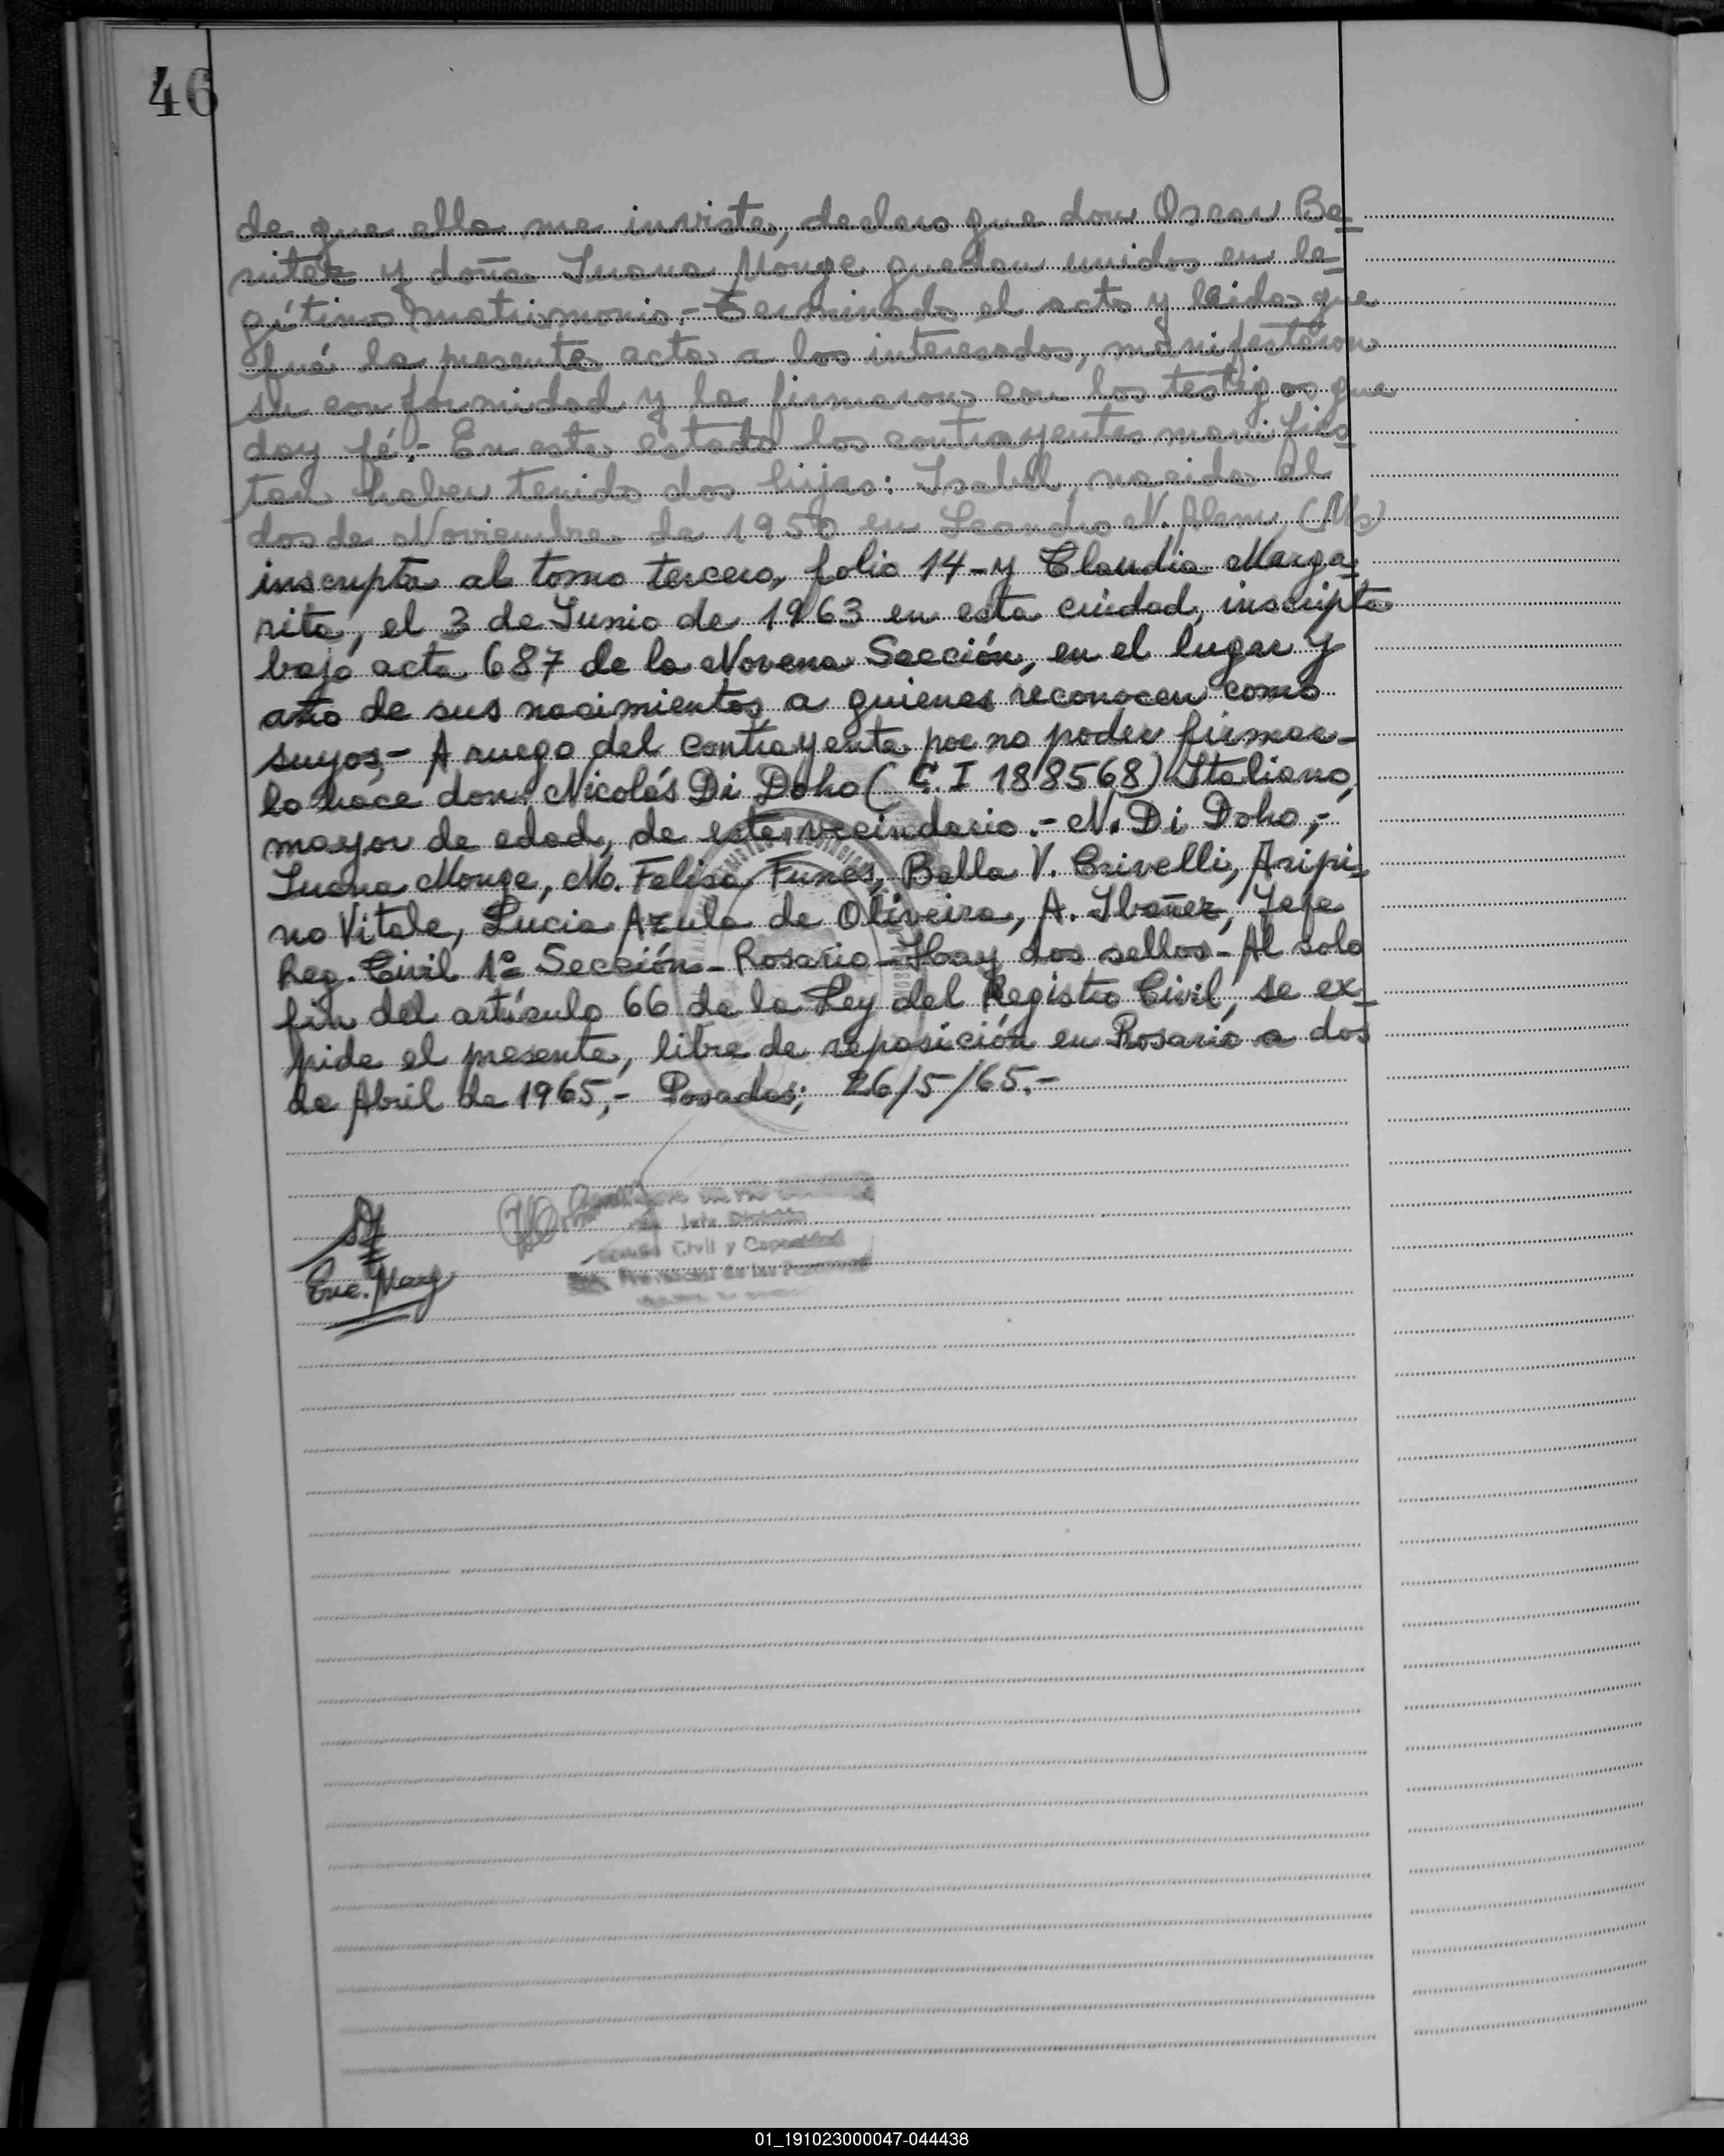 46
de que ella me inviste, declaro que don Oscar Be-
nitez y doña Juana Monge quedan unidos en le-
gítimo matrimonio.- Terminado el acto y leida que
fué la presente acta a los interesados, manifestaron
su conformidad y la firmaron con los testigos que
doy fé.- En este estado los contrayentes manifies-
tan haber tenido dos hijas: Isabel, nacida el
dos de Noviembre de 1950 en Leandro N. Alem (Ms)
inscripta al tomo tercero, folio 14- y Claudia Marga-
rita, el 3 de Junio de 1963 en esta ciudad, inscripta
bajo acta 687 de la Novena Sección, en el lugar y
año de sus nacimientos, a quienes reconocen como
suyos,- A ruego del contrayente por no poder firmar-
lo hace don Nicolás Di Doho (C.I 188568) Italiano,
mayor de edad, de este vecindario.- N. Di Doho,-
Juana Monge, M. Felisa Funes, Bella V. Crivelli, Aripi-
no Vitale, Lucia Azula de Oliveira, A. Ibañez, Jefe
Reg. Civil 1ª Sección - Rosario - Hay dos sellos - Al solo
fin del artículo 66 de la Ley del Registro Civil, se ex-
pide el presente, libre de reposición en Rosario a dos
de Abril de 1965,- Posadas; 26/5/65.-
Jefe División
Civil y Capacidad
Provincial de las Personas
01_191023000047-044438